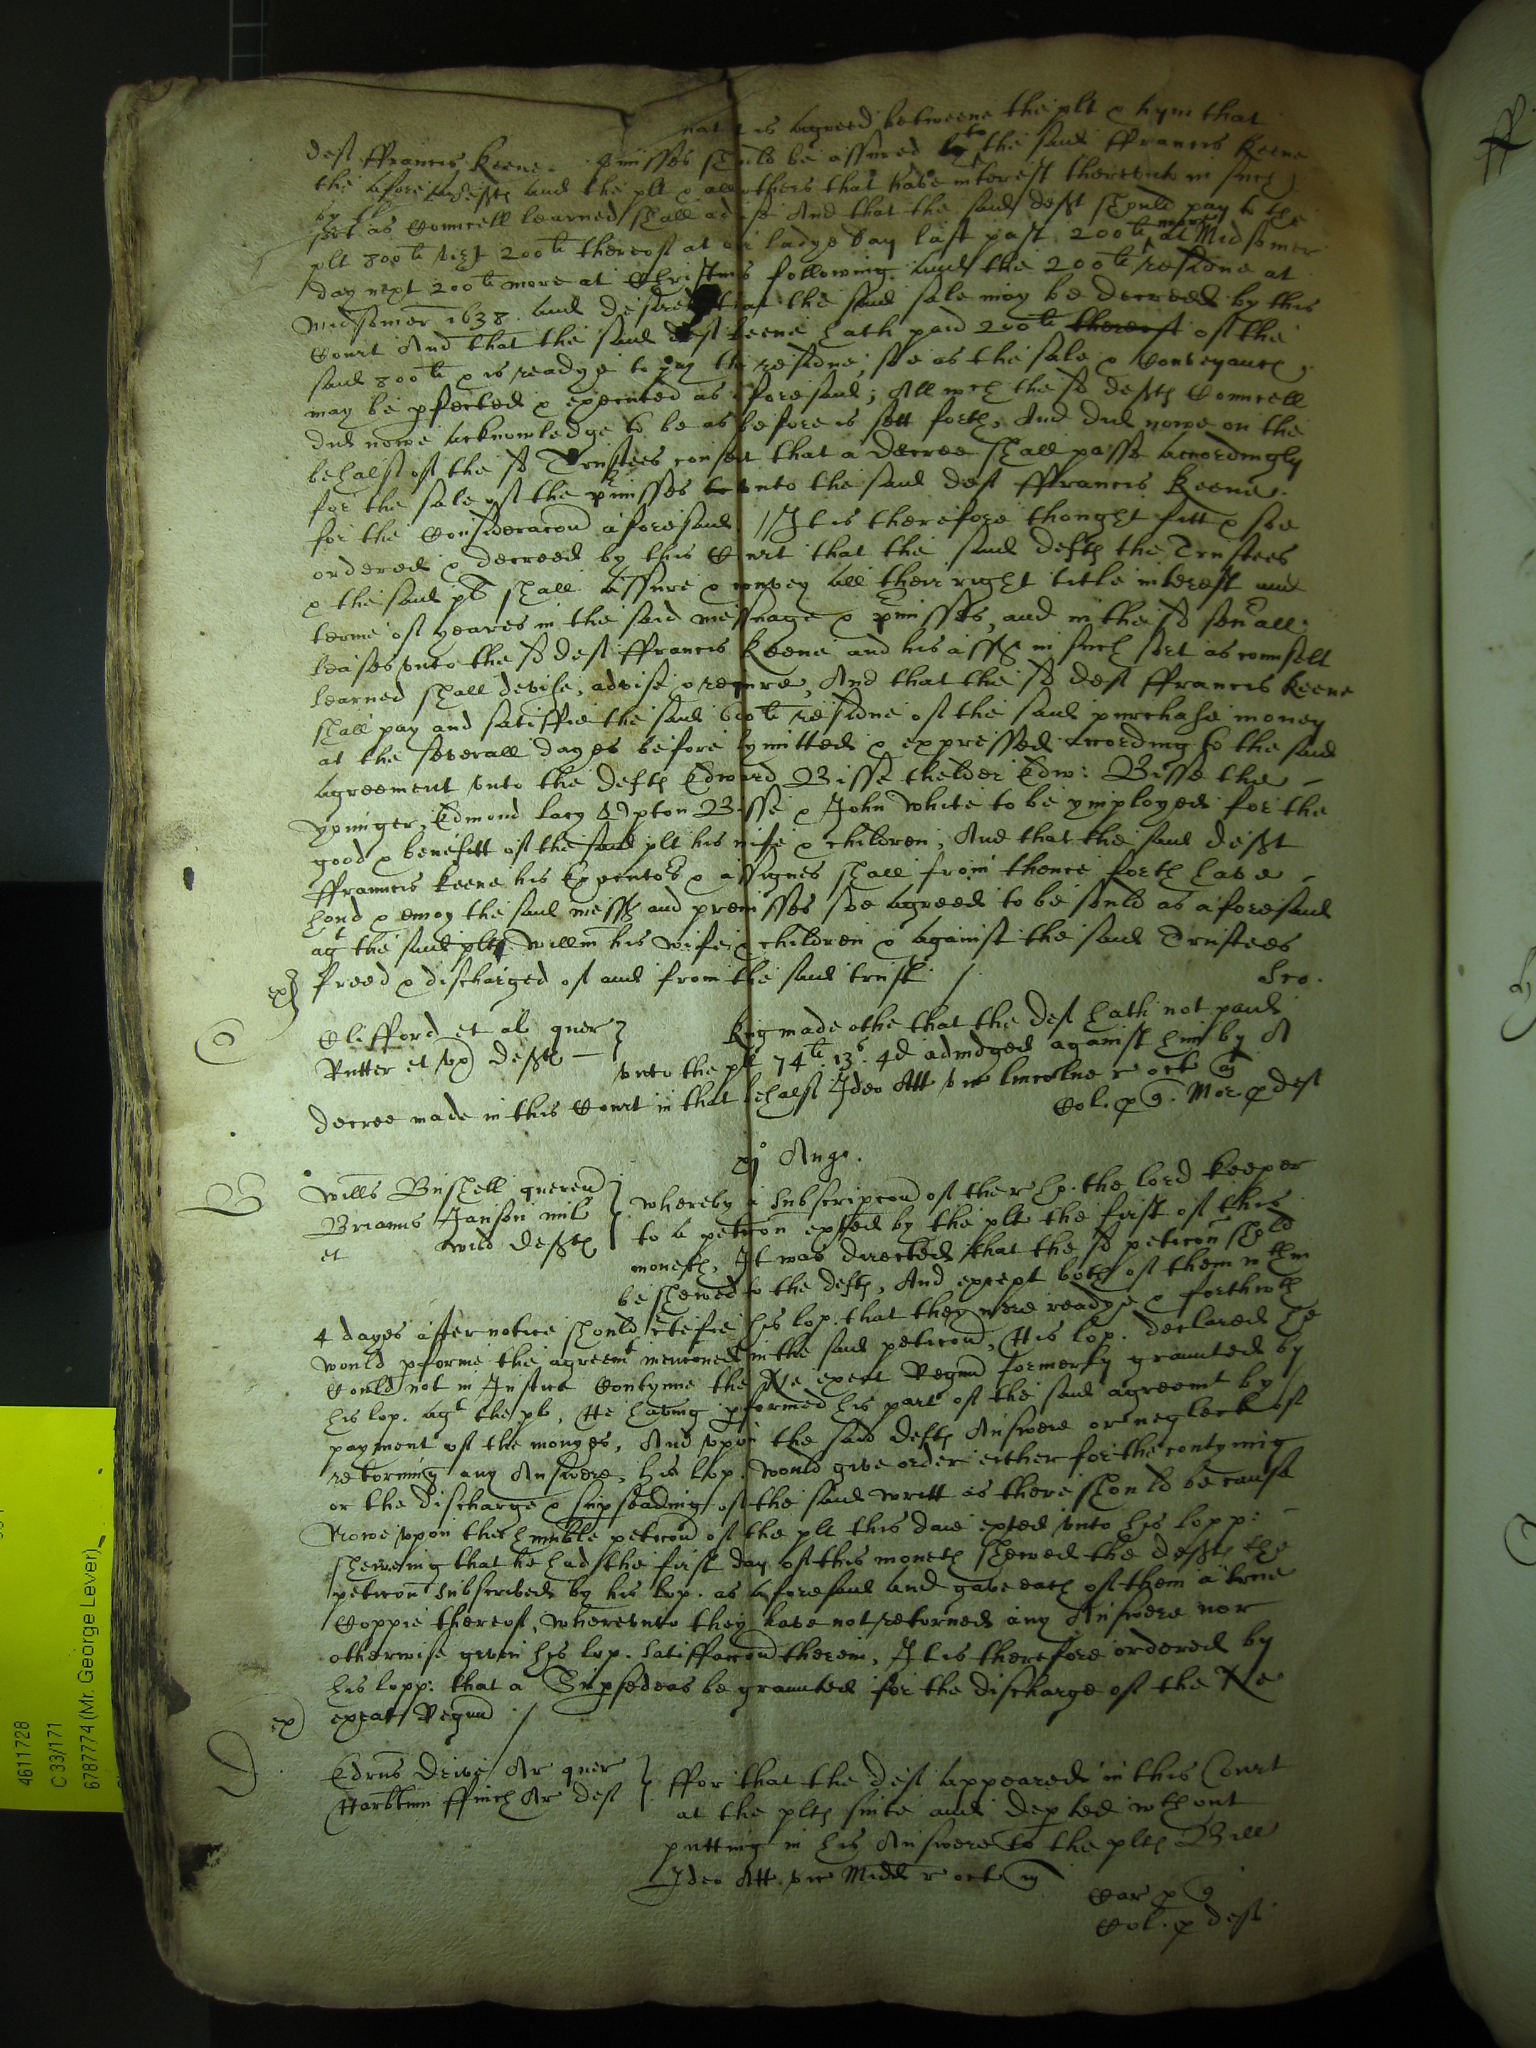 nat it is agreed betweene the plt & hym that
deft ffrancis Keene. pmisses should be assured to the said ffrancis Keene
the aforesaid defts and the plt & all others that have interest thereunto in such
sort as Councell learned shall advise And that the said deft should pay to the
plt 800li vizt 200li thereof at or ladye day last past 200li more at Midsomer
day next 200li more at Christmas following and the 200li residue at
Midsomer 1638. and desired that the said sale may be decreed by this
Court And that the said deft Keene hath paid 200li thereof of the
said 800li & is readye to pay the residue, soe as the sale & Conveyance
may be pfected & executed as aforesaid; All wch the sd defts Councell
did nowe acknowledge to be as before is sett forth, And did nowe on the
behalfe of the sd Trustees consent that a decree shall passe accordingly
for the sale of the pmisses unto the said deft ffrancis Keene
for the Consideracon aforesaid // It is therefore thought fitt & soe
ordered & decreed by this Court that the said defts the Trustees
& the said plt shall assure & convey all their right title interest and
terme of yeares in the said messuage & pmisses, and in the sd severall
leases unto the sd deft ffrancis Keene and his assgs in such sort as counsell
learned shall devise, advise or require, And that the sd deft ffrancis Keene
shall pay and satisfie the said 600li residue of the said purchase money
at the severall dayes before lymitted & expressed according to the said
agreement unto the defts Edward Bisse thelder Edw: Bisse the
younger, Edmond Lacy Upton Bisse & John White to be ymployed for the
good & benefitt of the said plt his wife & children, And that the said deft
ffrancis Keene his Executors & assignes shall from thence forth have
hold & enioy the said mess and premisses soe agreed to be sould as aforesaid
agt the said plt Willm his wife & children & against the said Trustees
freed & discharged of and from the said trust /
ex
Clifford et al quer
Rutter et ux defts
King made othe that the deft hath not paid
unto the plt 74li 13s 4d adiudged against him by A
decree made in this Court in that behalfe Ideo Att vic Lincolne r oct
Col. p Mor p deft
xj° Aug.
Willus Bushell queren
Brianus Janson mil
et Wild defts
Whereby a subscripcon of the r ho. the lord keeper
to a peticon exhted by the plt the first of this
moneth, It was directed that the sd peticon shold
be shewed to the defts, And except both of them wthin
4 dayes after notice should ctefie his lop. that they were readye & forthwth
would pforme the agreemt mencioned in the said peticon, His lop. declared he
Could not in Justice Contynue the Ne exeat Regnu formerly graunted by
his lop. agt the plt, He having pformed his part of the said agreemt by
payment of the monyes, And upon the said defts Answere or neglect of
retorning any Answere, his lop. would give order either for the contynuing
or the discharge & supseading of the said writt as there should be cause
Nowe upon the humble peticon of the plt this daie exted unto his lopp:
shewing that he had the first day of this moneth shewed the defts the
peticon subscribed by his lop. as aforesaid and gave each of them a true
Coppie thereof, whereunto they have not retorned any Answere nor
otherwise given his lop. satisfaccon therein, It is therefore ordered by
his lopp: that a Supsedeas be graunted for the discharge of the Ne
ex
exeat Regnu /
Edrus Ar quer
ffinch Ar deft
ffor that the deft appeared in this Court
at the plts suite and depted wthout
putting in his Answere to the plts Bill
Ideo Att. vic Midd r oct
Car p
Col. p deft
4611728
C 33/171
6787774 (Mr. George Lever)